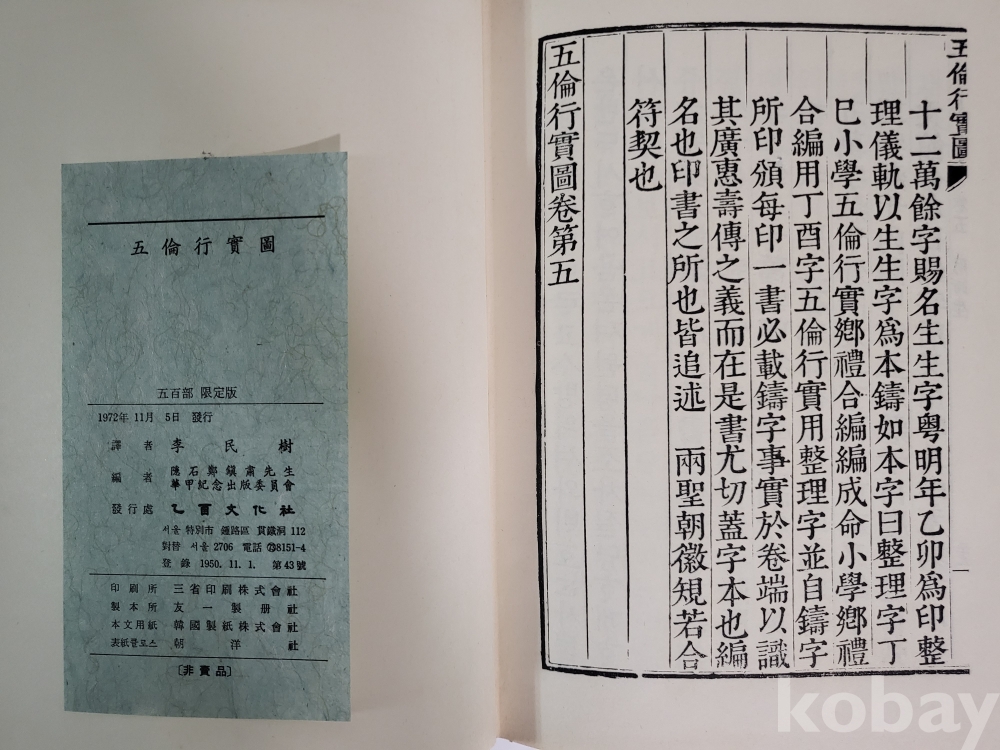 五倫行實圖
五百部 限定版
1972年 11月 5日 發行
譯者 李民樹
編者 隱石鄭鎭肅先生
華甲紀念出版委員會
發行處 乙酉文化社
서울 特別市 鍾路區 貫鐵洞 112
對替 서울 2706 電話 ㉓8151-4
登錄 1950. 11. 1. 第43號
印刷所 三省印刷株式會社
製本所 友一製册社
本文用紙 韓國製紙株式會社
表紙클로스 朝洋社
〔非賣品〕
五倫行實圖
十二萬餘字賜名生生字粤明年乙卯爲印整
理儀軌以生生字爲本鑄如本字曰整理字丁
巳小學五倫行實鄕禮合編編成命小學鄕禮
合編用丁酉字五倫行實用整理字並自鑄字
所印頒每印一書必載鑄字事實於卷端以識
其廣惠壽傳之義而在是書尤切蓋字本也編
名也印書之所也皆追述 兩聖朝徽規若合
符契也
五倫行實圖卷第五
kobay